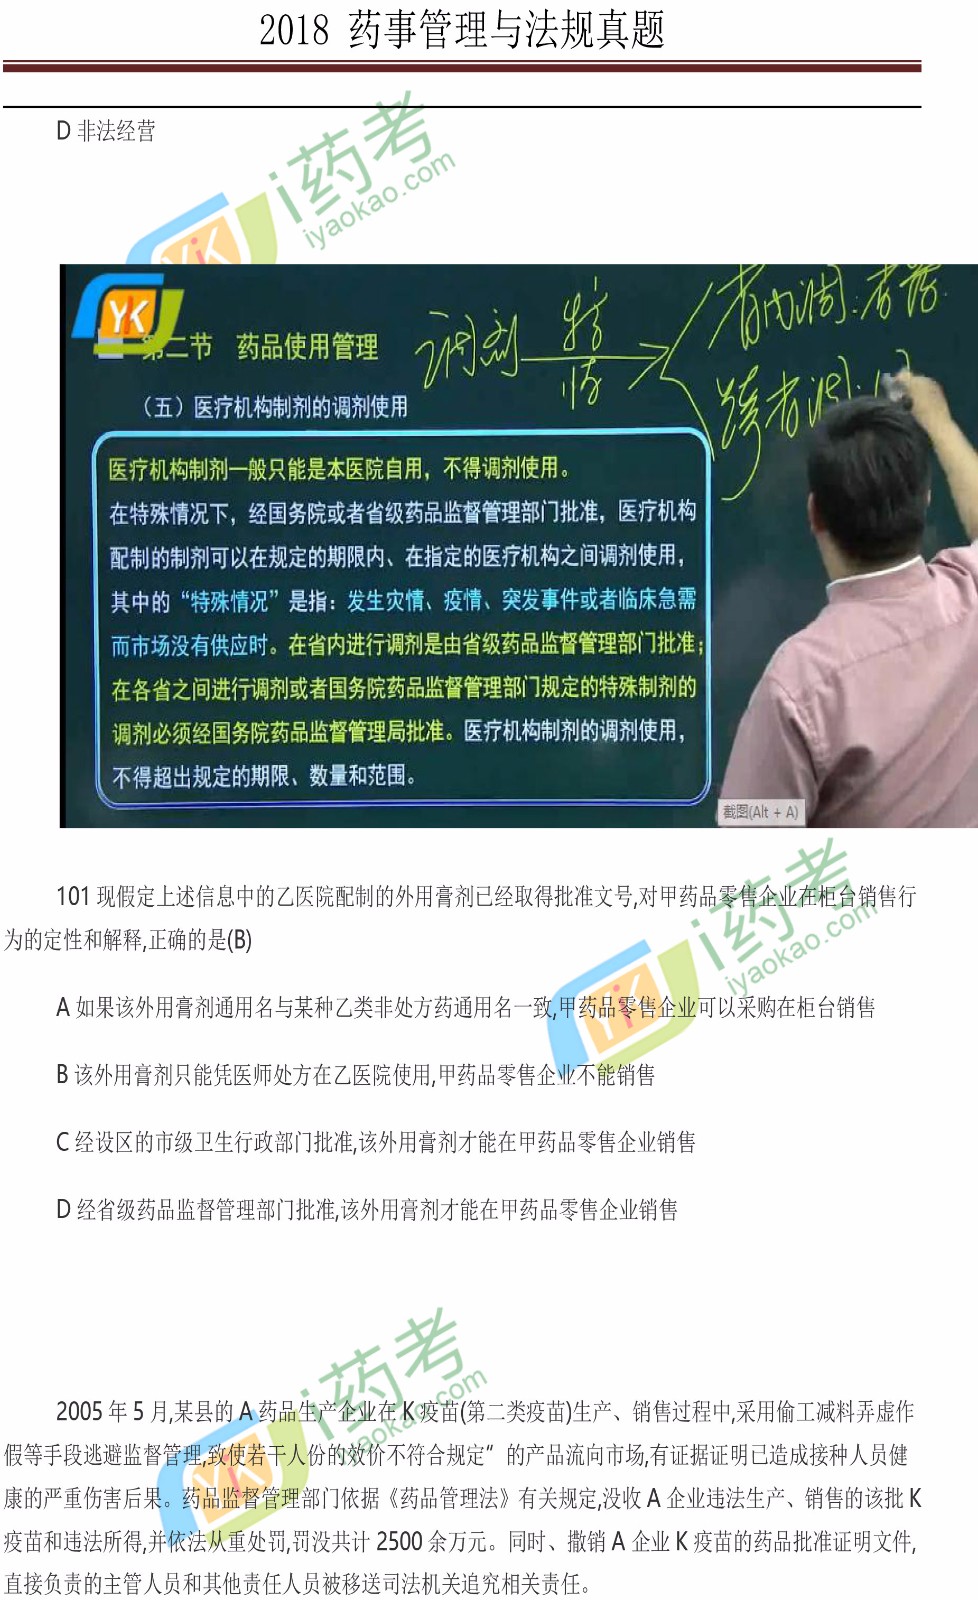 2018 药事管理与法规真题
D 非法经营
i药考
iyaokao.com
YK
第二节 药品使用管理
调剂 特情
省内调:省药
跨省调:
（五）医疗机构制剂的调剂使用
医疗机构制剂一般只能是本医院自用，不得调剂使用。
在特殊情况下，经国务院或者省级药品监督管理部门批准，医疗机构
配制的制剂可以在规定的期限内、在指定的医疗机构之间调剂使用，
其中的“特殊情况”是指：发生灾情、疫情、突发事件或者临床急需
而市场没有供应时。在省内进行调剂是由省级药品监督管理部门批准；
在各省之间进行调剂或者国务院药品监督管理部门规定的特殊制剂的
调剂必须经国务院药品监督管理局批准。医疗机构制剂的调剂使用，
不得超出规定的期限、数量和范围。
截图(Alt + A)
101 现假定上述信息中的乙医院配制的外用膏剂已经取得批准文号,对甲药品零售企业在柜台销售行
为的定性和解释,正确的是(B)
i药考
iyaokao.com
YK
A 如果该外用膏剂通用名与某种乙类非处方药通用名一致,甲药品零售企业可以采购在柜台销售
B 该外用膏剂只能凭医师处方在乙医院使用,甲药品零售企业不能销售
C 经设区的市级卫生行政部门批准,该外用膏剂才能在甲药品零售企业销售
D 经省级药品监督管理部门批准,该外用膏剂才能在甲药品零售企业销售
i药考
iyaokao.com
YK
2005 年 5 月,某县的 A 药品生产企业在 K 疫苗(第二类疫苗)生产、销售过程中,采用偷工减料弄虚作
假等手段逃避监督管理,致使若干人份的效价不符合规定”的产品流向市场,有证据证明已造成接种人员健
康的严重伤害后果。药品监督管理部门依据《药品管理法》有关规定,没收 A 企业违法生产、销售的该批 K
疫苗和违法所得,并依法从重处罚,罚没共计 2500 余万元。同时、撤销 A 企业 K 疫苗的药品批准证明文件,
直接负责的主管人员和其他责任人员被移送司法机关追究相关责任。